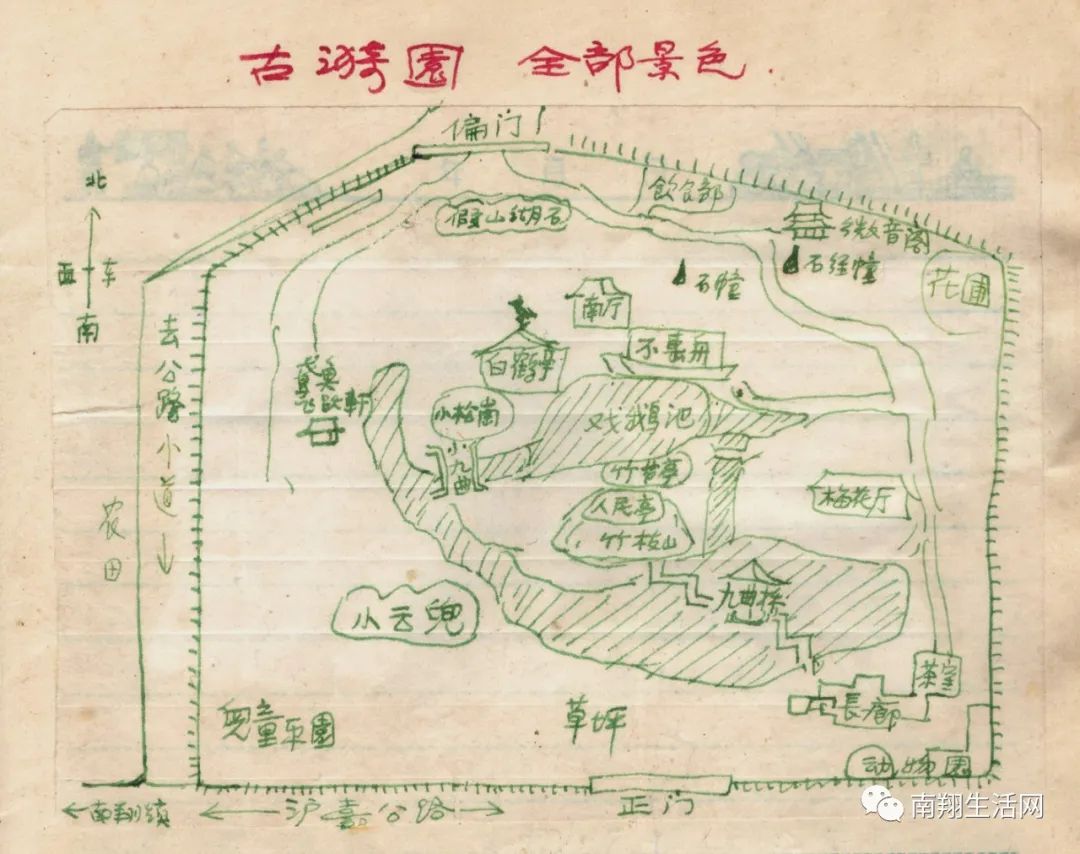 古漪園 全部景色.
偏门
北
西 东
南
飲食部
假山湖石
微音阁
石经幢
石幢
花圃
南厅
不系舟
白鹤亭
去公路小道
鸢飞鱼跃軒
小松崗
戏鹅池
小九曲
竹枝山
人民亭
梅花厅
农田
九曲桥
小云兜
茶室
長廊
兒童乐園
草坪
动物園
正门
南翔镇
沪嘉公路
南翔生活网